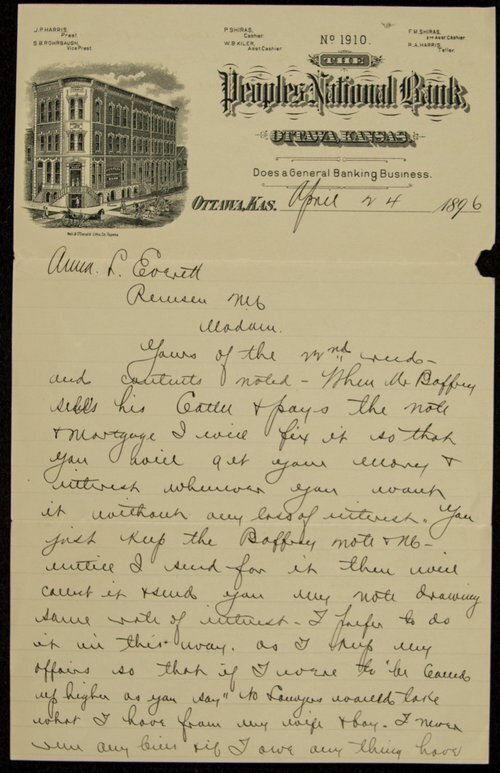 J.P. HARRIS,
Prest.
S.B. ROHRBAUGH,
Vice Prest.
P. SHIRAS,
Cashier
W.B. KILER,
Asst Cashier
No 1910.
F.M. SHIRAS,
2nd Asst Cashier
R.A. HARRIS,
Teller.
THE
Peoples National Bank,
OTTAWA, KANSAS.
Does a General Banking Business.
OTTAWA, KAS. April 24 1896
Anna. L. Everett
Remsen N.Y.
Madam.
Yours of the 22nd recd-
and contents noted - When Mr Baffrey
sells his Cattle & pays the note
& Mortgage I will fix it so that
you will get your money &
interest whenever you want
it without any loss of interest. You
just keep the Baffrey note & M-
until I send for it then will
collect it & send you my note drawing
same rate of interest - I prefer to do
it in this way. as I keep my
affairs so that if I were to "be called
up higher as you say" no Lawyers would take
what I have from my wife & boy. I never
run any bills & if I owe any thing have